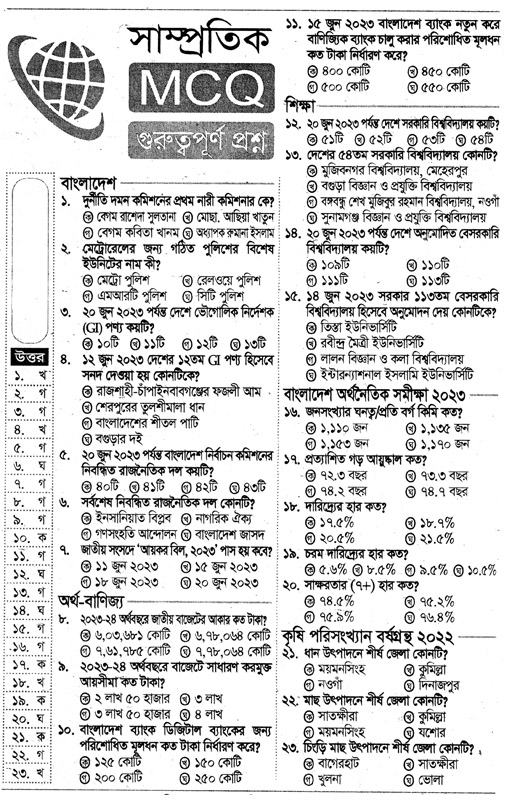 সাম্প্রতিক
MCQ
গুরুত্বপূর্ণ প্রশ্ন
উত্তর
১. খ
২. গ
৩. গ
৪. খ
৫. গ
৬. ঘ
৭. গ
৮. গ
৯. গ
১০. ক
১১. গ
১২. ঘ
১৩. গ
১৪. ঘ
১৫. গ
১৬. গ
১৭. ক
১৮. খ
১৯. ক
২০. ঘ
২১. ক
২২. গ
২৩. খ
বাংলাদেশ
১. দুর্নীতি দমন কমিশনের প্রথম নারী কমিশনার কে?
ক বেগম রাশেদা সুলতানা খ মোছা. আছিয়া খাতুন
গ বেগম কবিতা খানম ঘ অধ্যাপক রুমানা ইসলাম
২. মেট্রোরেলের জন্য গঠিত পুলিশের বিশেষ
ইউনিটের নাম কী?
ক মেট্রো পুলিশ খ রেলওয়ে পুলিশ
গ এমআরটি পুলিশ ঘ সিটি পুলিশ
৩. ২০ জুন ২০২৩ পর্যন্ত দেশে ভৌগোলিক নির্দেশক
(GI) পণ্য কয়টি?
ক ১০টি খ ১১টি গ ১২টি ঘ ১৩টি
৪. ১২ জুন ২০২৩ দেশের ১২তম GI পণ্য হিসেবে
সনদ দেওয়া হয় কোনটিকে?
ক রাজশাহী-চাঁপাইনবাবগঞ্জের ফজলী আম
খ শেরপুরের তুলশীমালা ধান
গ বাংলাদেশের শীতল পাটি
ঘ বগুড়ার দই
৫. ২০ জুন ২০২৩ পর্যন্ত বাংলাদেশ নির্বাচন কমিশনের
নিবন্ধিত রাজনৈতিক দল কয়টি?
ক ৪০টি খ ৪১টি গ ৪২টি ঘ ৪৩টি
৬. সর্বশেষ নিবন্ধিত রাজনৈতিক দল কোনটি?
ক ইনসানিয়াত বিপ্লব খ নাগরিক ঐক্য
গ গণসংহতি আন্দোলন ঘ বাংলাদেশ জাসদ
৭. জাতীয় সংসদে 'আয়কর বিল, ২০২৩' পাস হয় কবে?
ক ১১ জুন ২০২৩ খ ১৫ জুন ২০২৩
গ ১৮ জুন ২০২৩ ঘ ২০ জুন ২০২৩
অর্থ-বাণিজ্য
৮. ২০২৩-২৪ অর্থবছরে জাতীয় বাজেটের আকার কত টাকা?
ক ৬,০৩,৬৮১ কোটি খ ৬,৭৮,০৬৪ কোটি
গ ৭,৬১,৭৮৫ কোটি ঘ ৭,৭৮,০৬৪ কোটি
৯. ২০২৩-২৪ অর্থবছরে বাজেটে সাধারণ করমুক্ত
আয়সীমা কত টাকা?
ক ২ লাখ ৫০ হাজার খ ৩ লাখ
গ ৩ লাখ ৫০ হাজার ঘ ৪ লাখ
১০. বাংলাদেশ ব্যাংক ডিজিটাল ব্যাংকের জন্য
পরিশোধিত মূলধন কত টাকা নির্ধারণ করে?
ক ১২৫ কোটি খ ১৫০ কোটি
গ ২০০ কোটি ঘ ২৫০ কোটি
১১. ১৫ জুন ২০২৩ বাংলাদেশ ব্যাংক নতুন করে
বাণিজ্যিক ব্যাংক চালু করার পরিশোধিত মূলধন
কত টাকা নির্ধারণ করে?
ক ৪০০ কোটি খ ৪৫০ কোটি
গ ৫০০ কোটি ঘ ৫৫০ কোটি
শিক্ষা
১২. ২০ জুন ২০২৩ পর্যন্ত দেশে সরকারি বিশ্ববিদ্যালয় কয়টি?
ক ৫১টি খ ৫২টি গ ৫৩টি ঘ ৫৪টি
১৩. দেশের ৫৪তম সরকারি বিশ্ববিদ্যালয় কোনটি?
ক মুজিবনগর বিশ্ববিদ্যালয়, মেহেরপুর
খ বগুড়া বিজ্ঞান ও প্রযুক্তি বিশ্ববিদ্যালয়
গ বঙ্গবন্ধু শেখ মুজিবুর রহমান বিশ্ববিদ্যালয়, নওগাঁ
ঘ সুনামগঞ্জ বিজ্ঞান ও প্রযুক্তি বিশ্ববিদ্যালয়
১৪. ২০ জুন ২০২৩ পর্যন্ত দেশে অনুমোদিত বেসরকারি
বিশ্ববিদ্যালয় কয়টি?
ক ১০৯টি খ ১১০টি
গ ১১১টি ঘ ১১৩টি
১৫. ১৪ জুন ২০২৩ সরকার ১১৩তম বেসরকারি
বিশ্ববিদ্যালয় হিসেবে অনুমোদন দেয় কোনটিকে?
ক তিস্তা ইউনিভার্সিটি
খ রবীন্দ্র মৈত্রী ইউনিভার্সিটি
গ লালন বিজ্ঞান ও কলা বিশ্ববিদ্যালয়
ঘ ইন্টারন্যাশনাল ইসলামি ইউনিভার্সিটি
বাংলাদেশ অর্থনৈতিক সমীক্ষা ২০২৩
১৬. জনসংখ্যার ঘনত্ব/প্রতি বর্গ কিমি কত?
ক ১,১১০ জন খ ১,১৩৫ জন
গ ১,১৫৩ জন ঘ ১,১৭০ জন
১৭. প্রত্যাশিত গড় আয়ুষ্কাল কত?
ক ৭২.৩ বছর খ ৭৩.৩ বছর
গ ৭৪.২ বছর ঘ ৭৪.৭ বছর
১৮. দারিদ্র্যের হার কত?
ক ১৭.৫% খ ১৮.৭%
গ ২০.৫% ঘ ২১.৫%
১৯. চরম দারিদ্র্যের হার কত?
ক ৫.৬% খ ৮.৫% গ ৯.৫% ঘ ১০.৫%
২০. সাক্ষরতার (৭+) হার কত?
ক ৭৪.৫% খ ৭৫.২%
গ ৭৫.৯% ঘ ৭৬.৪%
কৃষি পরিসংখ্যান বর্ষগ্রন্থ ২০২২
২১. ধান উৎপাদনে শীর্ষ জেলা কোনটি?
ক ময়মনসিংহ খ কুমিল্লা
গ নওগাঁ ঘ দিনাজপুর
২২. মাছ উৎপাদনে শীর্ষ জেলা কোনটি?
ক সাতক্ষীরা খ কুমিল্লা
গ ময়মনসিংহ ঘ যশোর
২৩. চিংড়ি মাছ উৎপাদনে শীর্ষ জেলা কোনটি?
ক বাগেরহাট খ সাতক্ষীরা
গ খুলনা ঘ ভোলা